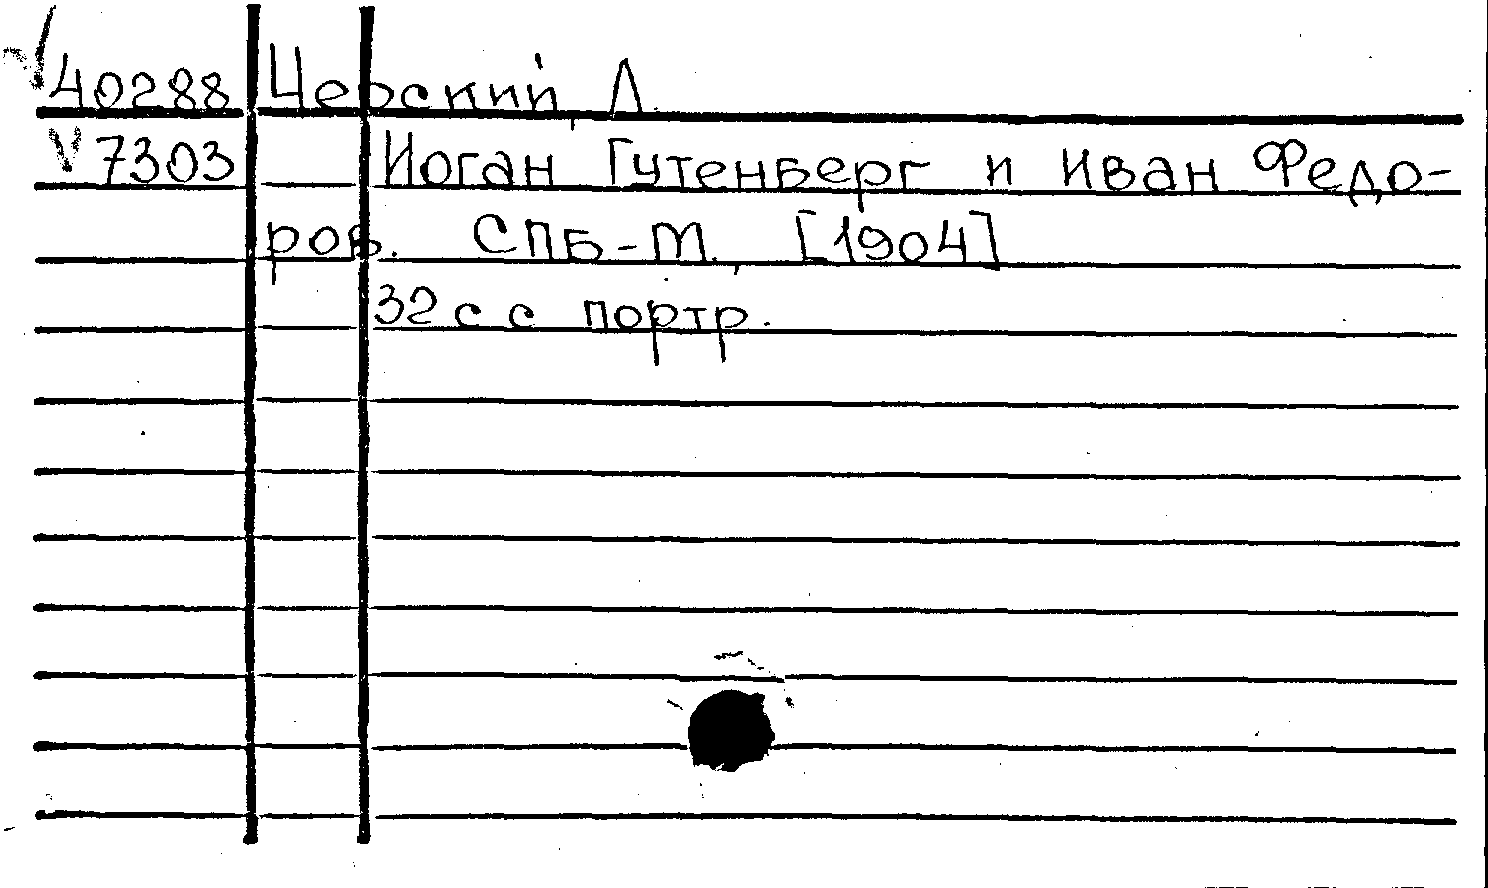 √ 40288 Черский, Л.
V 7303 Иоган Гутенберг и Иван Федо-
ров. СПБ-М., [1904]
32 с с портр.